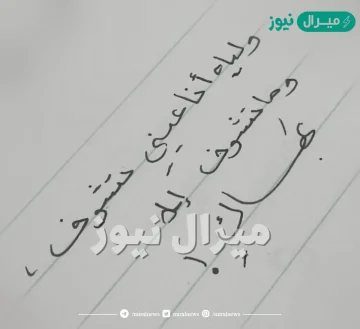 ميرال نيوز
وليه أنا عيني تشوف،
وما تشوف إلا
بهاك!
ميرال نيوز
miralnews miralnews miralnews